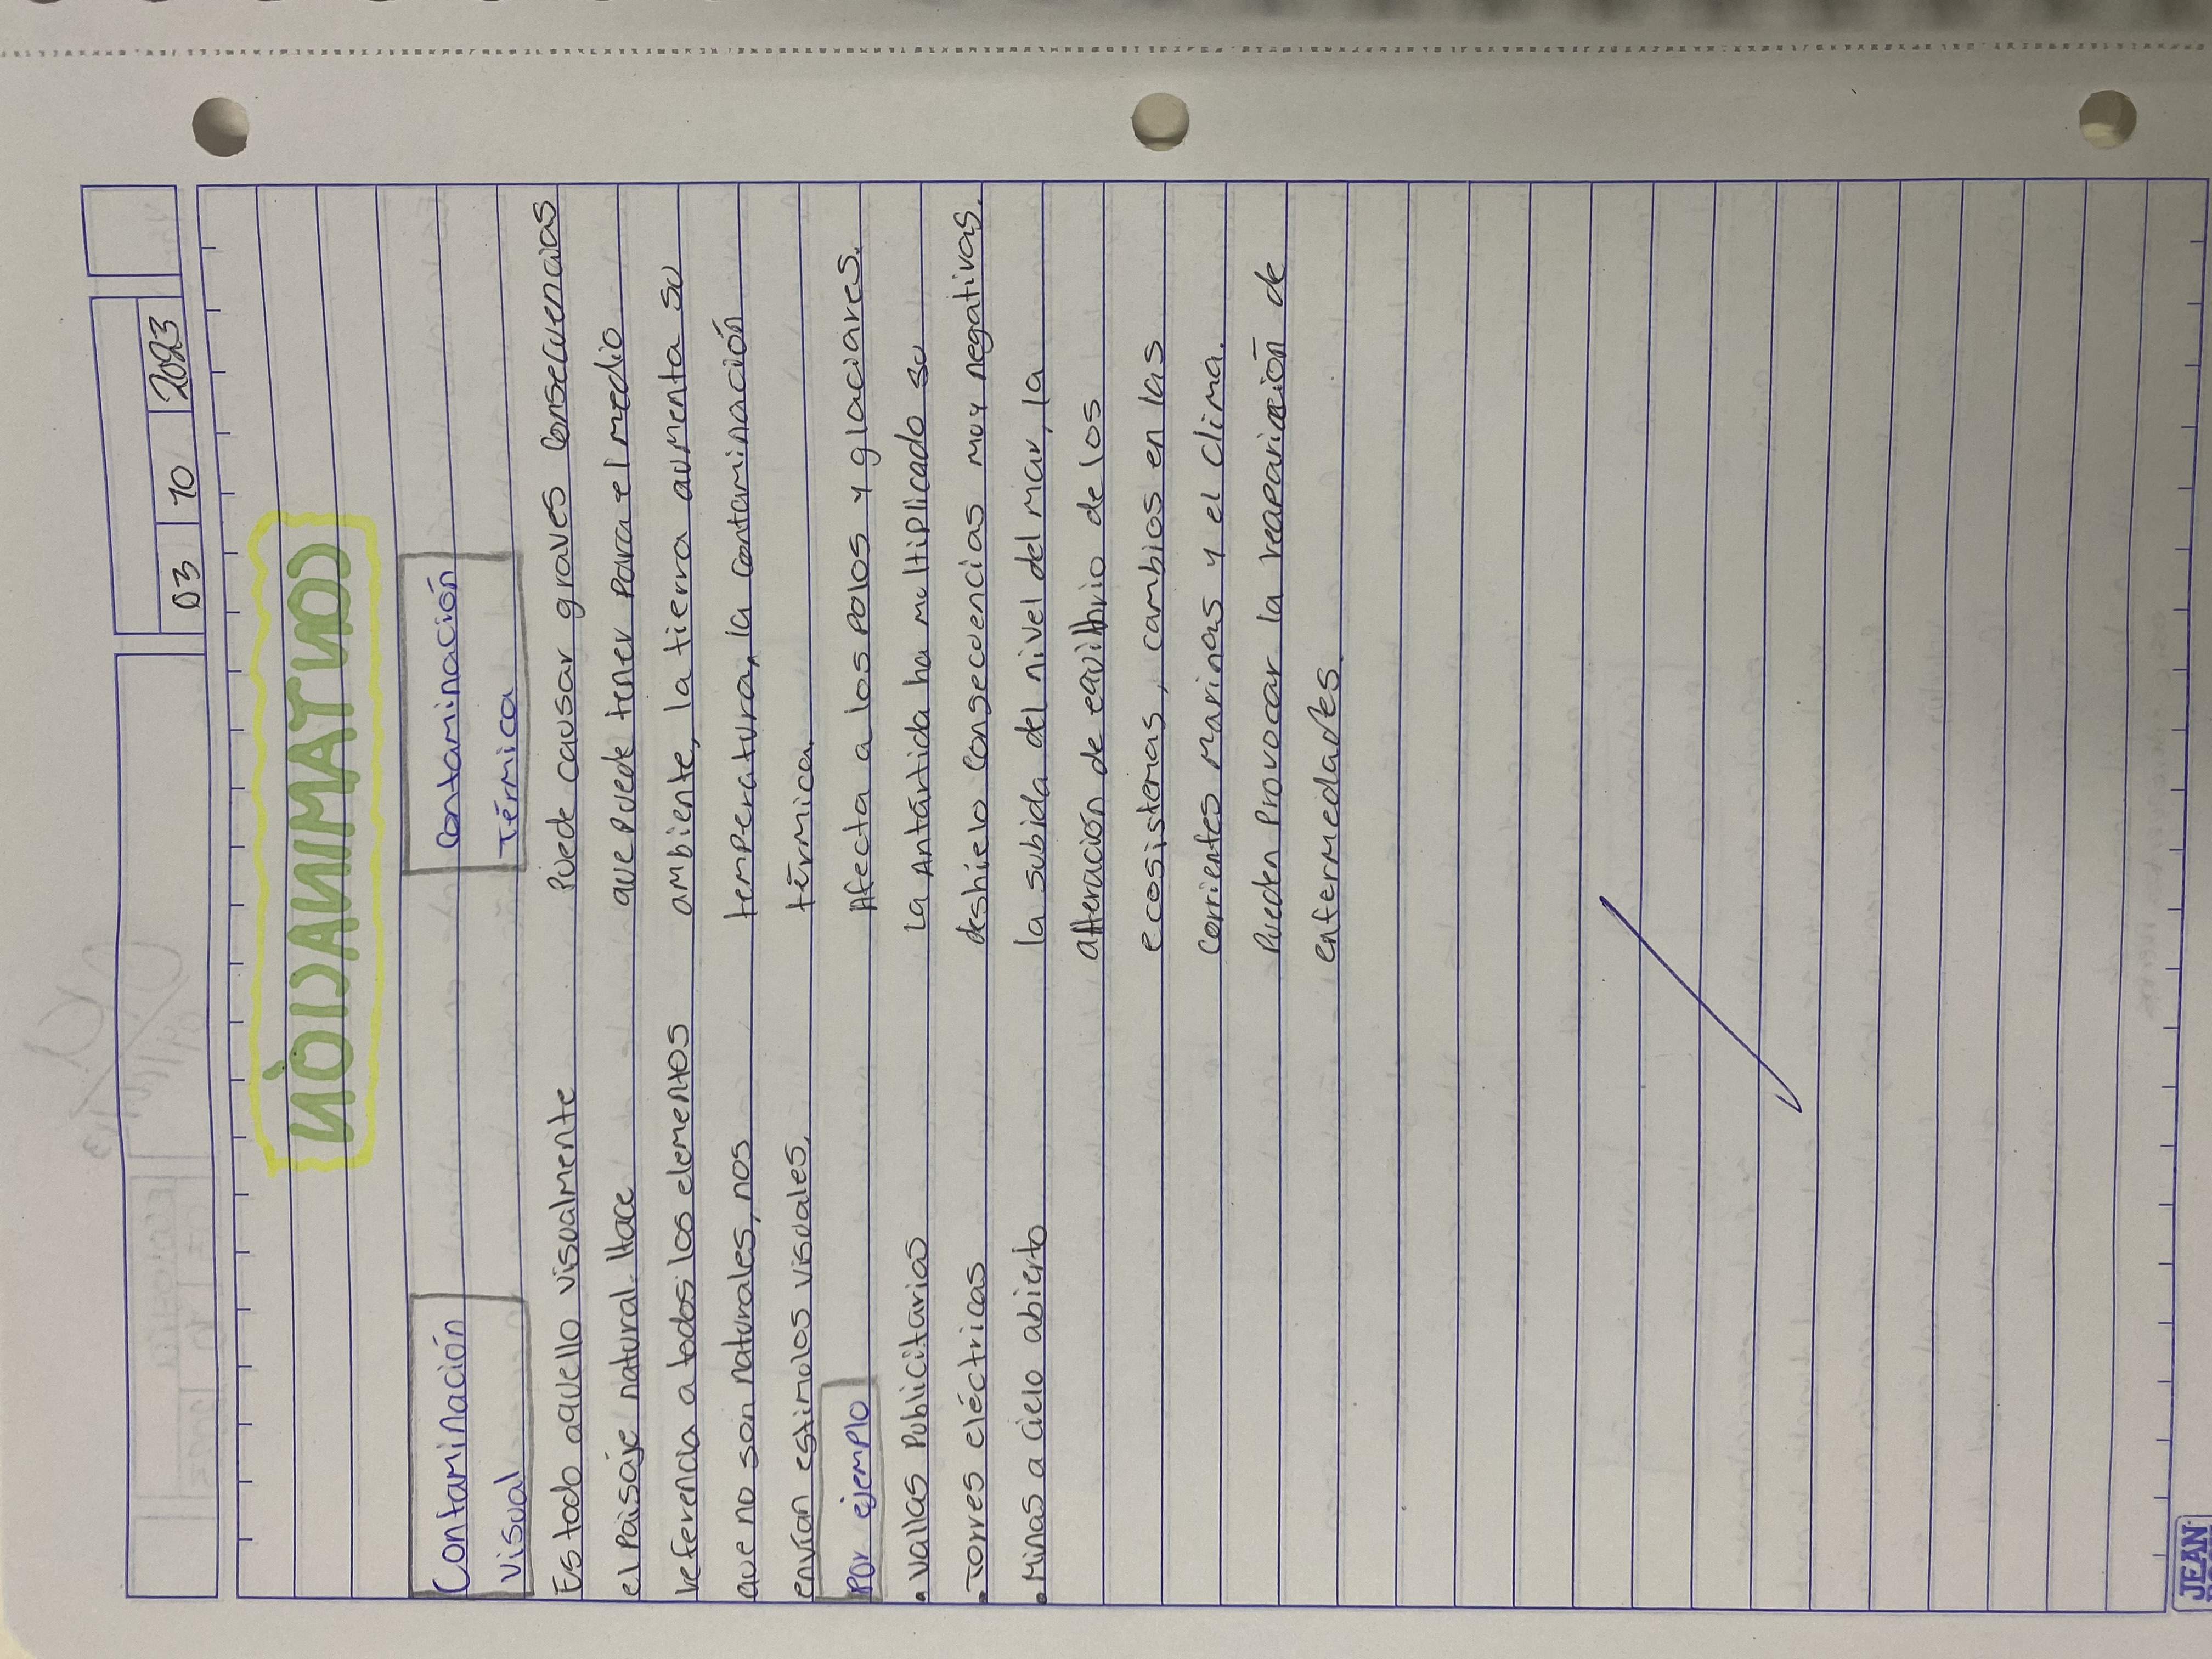 03 10 2023
CONTAMINACIÓN
Contaminación
Visual
Es todo aquello visualmente
el Paisaje natural. Hace
referencia a todos los elementos
que no son naturales, nos
envían estimulos visuales.
Por ejemplo
• Vallas Publicitarias
• Torres eléctricas
• Minas a cielo abierto
Contaminación
Térmica
Puede causar graves Consecuencias
que Puede tener Para el medio
ambiente, la tierra aumenta su
temperatura, la contaminación
térmica.
Afecta a los Polos y glaciares.
La Antártida ha multiplicado su
deshielo Consecuencias muy negativas.
la subida del nivel del mar, la
alteración de equilibrio de los
ecosistemas, cambios en las
Corrientes Marinas y el clima.
Pueden Provocar la reaparición de
enfermedades.
JEAN